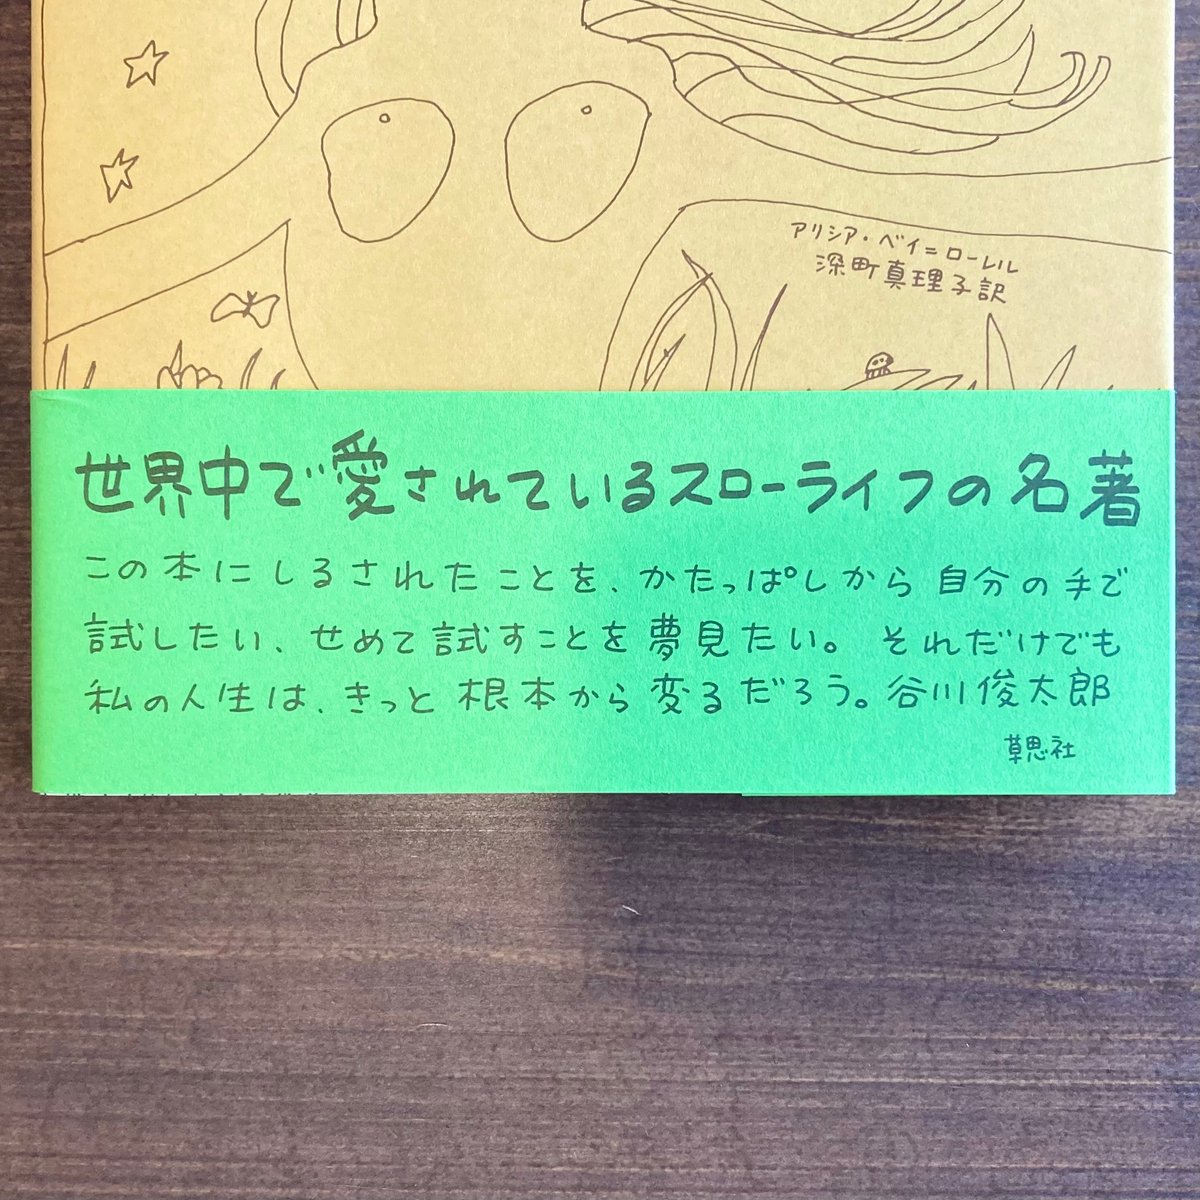 アリシア・ベイ=ローレル
深町真理子訳
世界中で愛されているスローライフの名著
この本にしるされたことを、かたっぱしから自分の手で
試したい、せめて試すことを夢見たい。それだけでも
私の人生は、きっと根本から変るだろう。谷川俊太郎
草思社